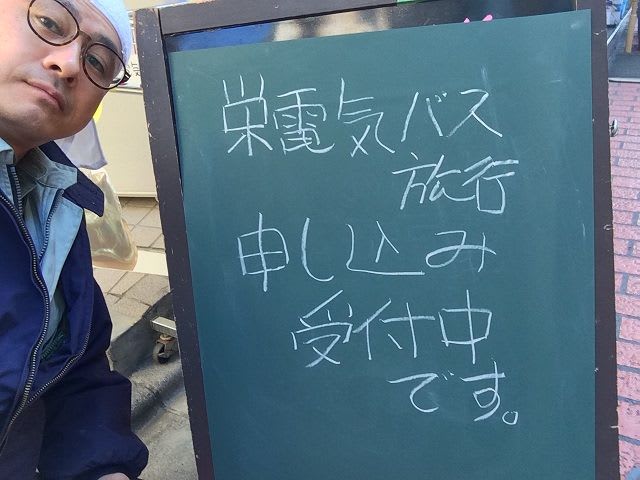 栄電気バス
旅行
申し込み
受付中
です。